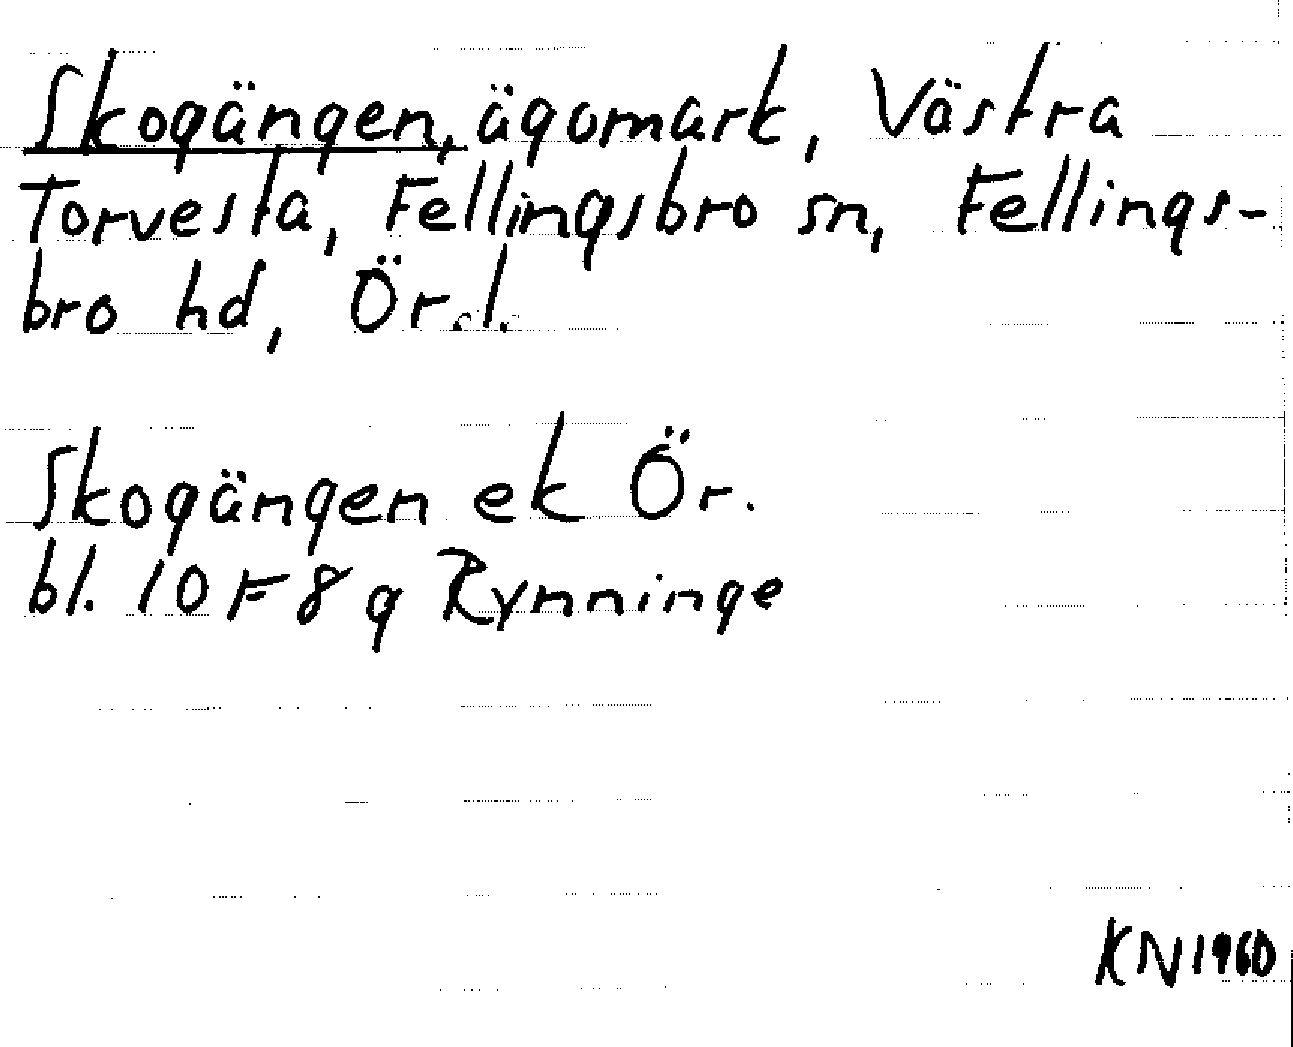 Skogängen, ägomark, Västra
Torvesta, Fellingsbro sn, Fellings-
bro hd, Ör. l.
Skogängen ek Ör.
bl. 10F 8g Rynninge
KN 1960